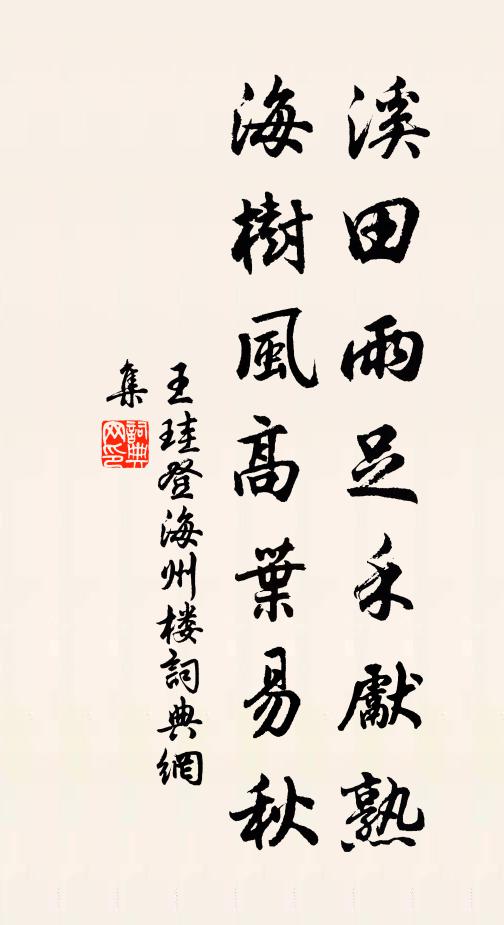 溪田雨足禾獻熟
海樹風高葉易秋
王珪登海州楼詞典網
集
詞典网印